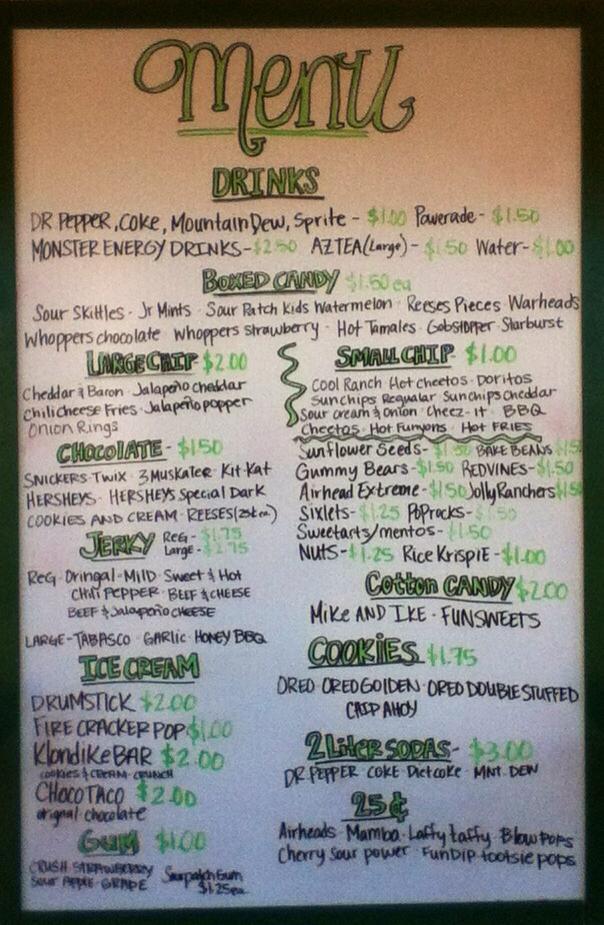 Menu
DRINKS
DR PEPPER, Coke, Mountain Dew, Sprite - $1.00 Powerade - $1.50
MONSTER ENERGY DRINKS - $2.50 AZTEA (Large) - $1.50 Water - $1.00
BOXED CANDY $1.50 ea
Sour Skittles · Jr Mints · Sour Patch Kids Watermelon · Reeses Pieces Warheads
Whoppers chocolate Whoppers strawberry · Hot Tamales · Gobstopper · Starburst
LARGE CHIP $2.00
Cheddar & Bacon · Jalapeño cheddar
Chili cheese Fries · Jalapeño popper
Onion Rings
CHOCOLATE - $1.50
SNICKERS · TWIX · 3 MUSKATER · Kit Kat
HERSHEYS · HERSHEYS Special Dark
COOKIES AND CREAM · REESES (25¢ ea)
JERKY REG - $1.75
Large - $2.75
REG - Oringal - MILD · Sweet & Hot
CHILI PEPPER · BEEF & CHEESE
BEEF & Jalapeño CHEESE
LARGE - TABASCO · GARLIC · HONEY BBQ
ICE CREAM
DRUMSTICK $2.00
FIRE CRACKER POP $1.00
Klondike BAR $2.00
COOKIES & CREAM · CRUNCH
CHOCO TACO $2.00
orignal · chocolate
GUM $1.00
CRUSH STRAWBERRY
SOUR APPLE · GRAPE Sourpatch Gum
$1.25 ea
SMALL CHIP - $1.00
COOL Ranch · Hot cheetos · Doritos
Sunchips Regualar · Sunchips cheddar
Sour cream & Onion · Cheez-it · BBQ
Cheetos · Hot Funyons · Hot FRIES
Sunflower Seeds - $1.50 BAKE BEANS
Gummy Bears - $1.50 REDVINES - $1.50
Airhead Extreme - $1.50 Jolly Ranchers
Sixlets - $1.25 PopRocks - $1.50
Sweetarts/mentos - $1.50
NUTS - $1.25 Rice KrispIE - $1.00
Cotton CANDY $2.00
MIKE AND IKE · FUNSWEETS
COOKIES $1.75
OREO · OREO GOLDEN · OREO DOUBLE STUFFED
CHIP AHOY
2 Liter SODAS - $3.00
DR.PEPPER · COKE · Diet coke · MNT. DEW
25¢
Airheads · Mamba · Laffy taffy · Blow Pops
Cherry Sour power · Fun Dip · tootsie pops